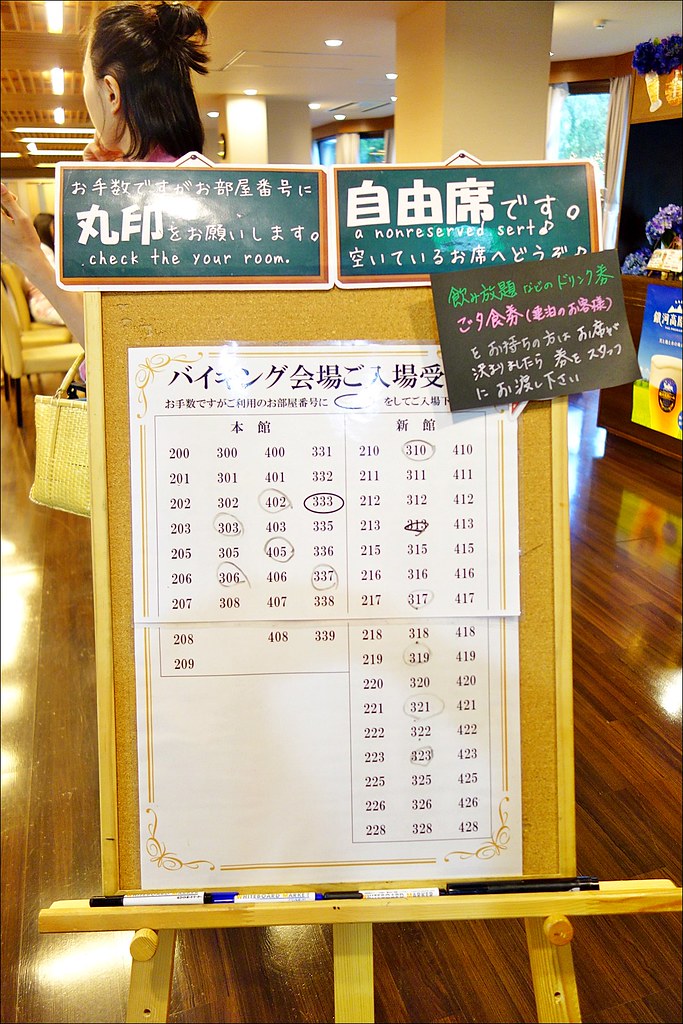 お手数ですがお部屋番号に
丸印をお願いします。
check the your room.
自由席です。
a nonreserved sert♪
空いているお席へどうぞ♪
飲み放題などのドリンク券
ご夕食券(連泊のお客様)
をお持ちの方はお席が
決まりましたら券をスタッフ
にお渡し下さい
バイキング会場ご入場受
お手数ですがご利用のお部屋番号に をしてご入場下
本館 新館
200 300 400 331 210 310 410
201 301 401 332 211 311 411
202 302 402 333 212 312 412
203 303 403 335 213 313 413
205 305 405 336 215 315 415
206 306 406 337 216 316 416
207 308 407 338 217 317 417
208 408 339 218 318 418
209 219 319 419
220 320 420
221 321 421
222 322 422
223 323 423
225 325 425
226 326 426
228 328 428
銀河高原
WHITEBOARD MARKER
WHITEBOARD MARKER